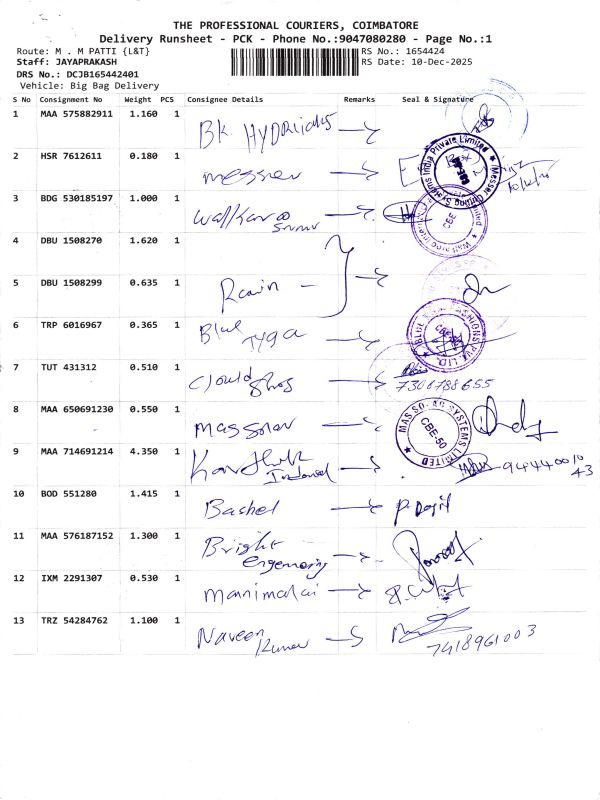 THE PROFESSIONAL COURIERS, COIMBATORE
Delivery Runsheet - PCK - Phone No.:9047080280 - Page No.:1
Route: M . M PATTI {L&T}
RS No.: 1654424
Staff: JAYAPRAKASH
RS Date: 10-Dec-2025
DRS No.: DCJB165442401
Vehicle: Big Bag Delivery
S No Consignment No Weight PCS Consignee Details Remarks Seal & Signature
1 MAA 575882911 1.160 1 BK HYDRliaks
2 HSR 7612611 0.180 1 messer
3 BDG 530185197 1.000 1
4 DBU 1508270 1.620 1
5 DBU 1508299 0.635 1
6 TRP 6016967 0.365 1 Blue TYga
7 TUT 431312 0.510 1 Clould
7306788655
8 MAA 650691230 0.550 1 massolar
MAS SOLAR SYSTEMS LIMITED
CBE-50
9 MAA 714691214 4.350 1
9444001043
10 BOD 551280 1.415 1 Bashel
11 MAA 576187152 1.300 1 Bright
12 IXM 2291307 0.530 1 manimalai
13 TRZ 54284762 1.100 1 Naveen Kumar
7418961003